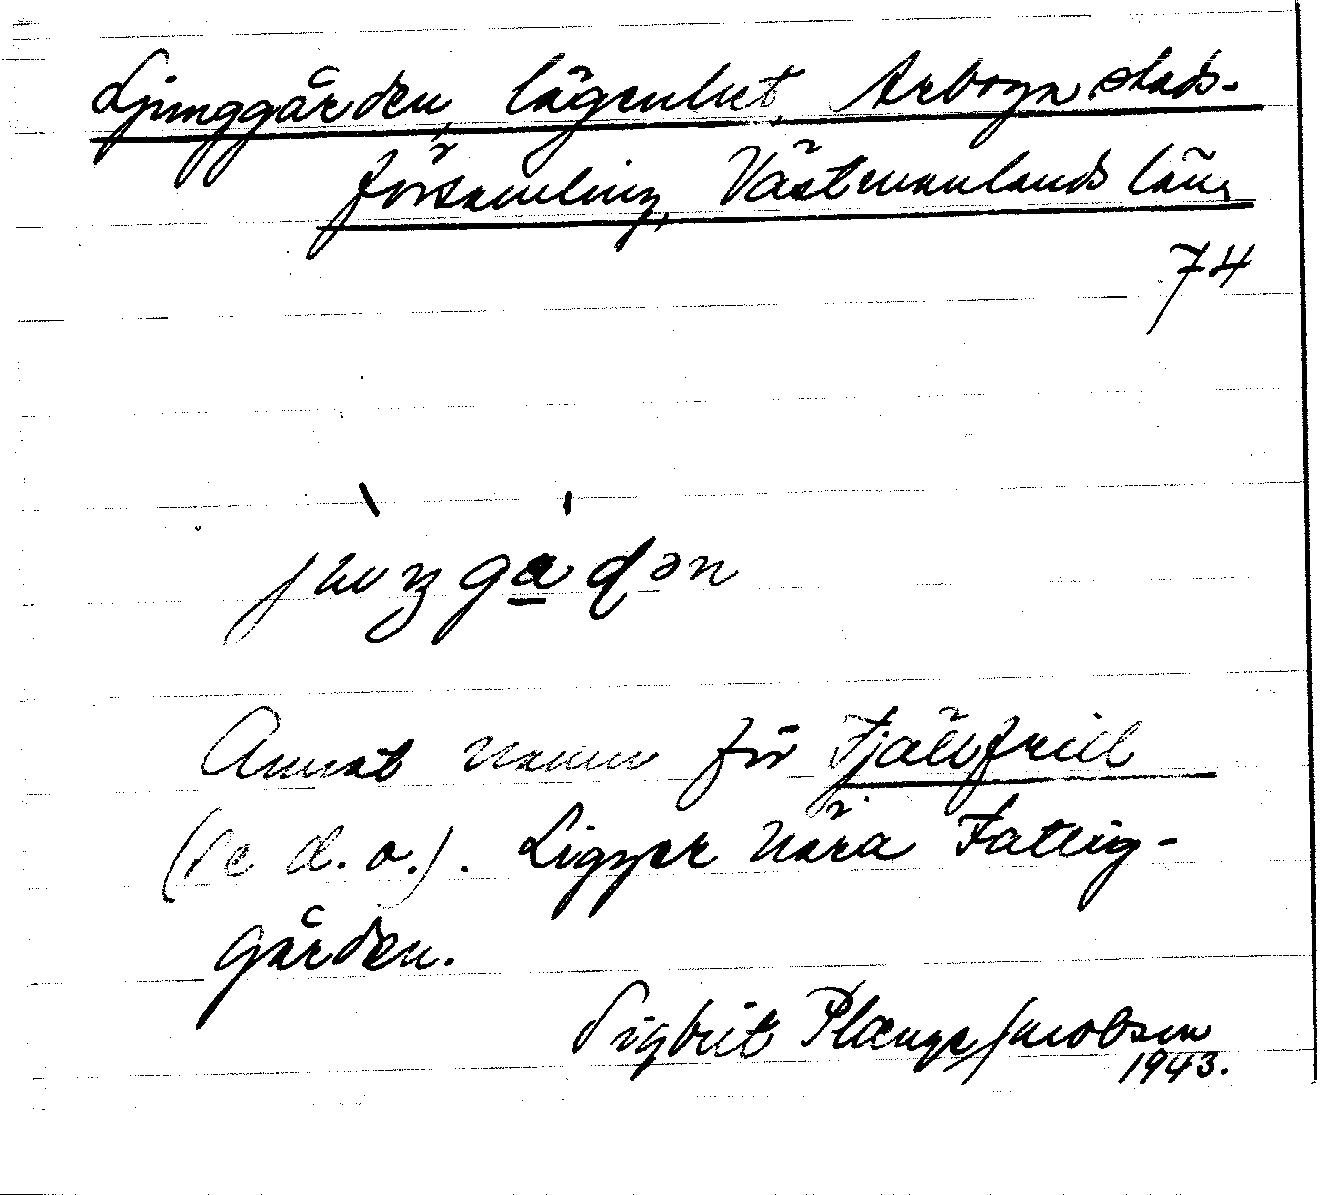 Ljunggården, lägenhet, Arboga stads-
församling, Västmanlands län,
74
Annat namn för Fjällfrill
(se d. o.). Ligger nära Fattig-
gården.
Sigbrit Plænge Jacobsen
1943.